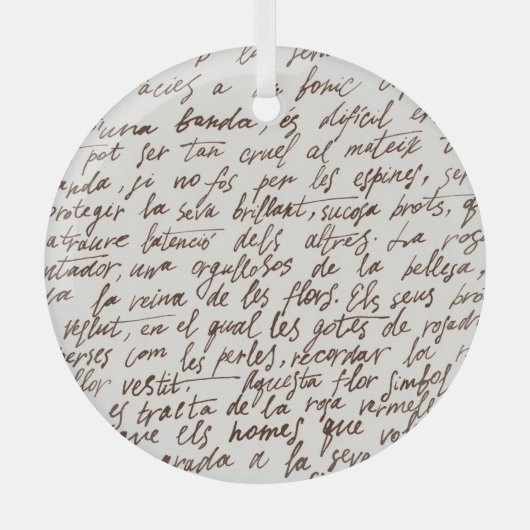 la seva
àcies a un fonic
'una banda, és difícil en
pot ser tan cruel al mateix t
anda, si no fos per les espines, ser
protegir la seva brillant, sucosa brots, q
atraure l'atenció dels altres. La rosa
ntador, una orgullosos de la bellesa,
la reina de les flors. Els seus pro
vellut, en el qual les gotes de rosad
erses com les perles, recordar la r
llor vestit. Aquesta flor simbos
es tracta de la roja vermell
ave els homes que vol
arada a la seva